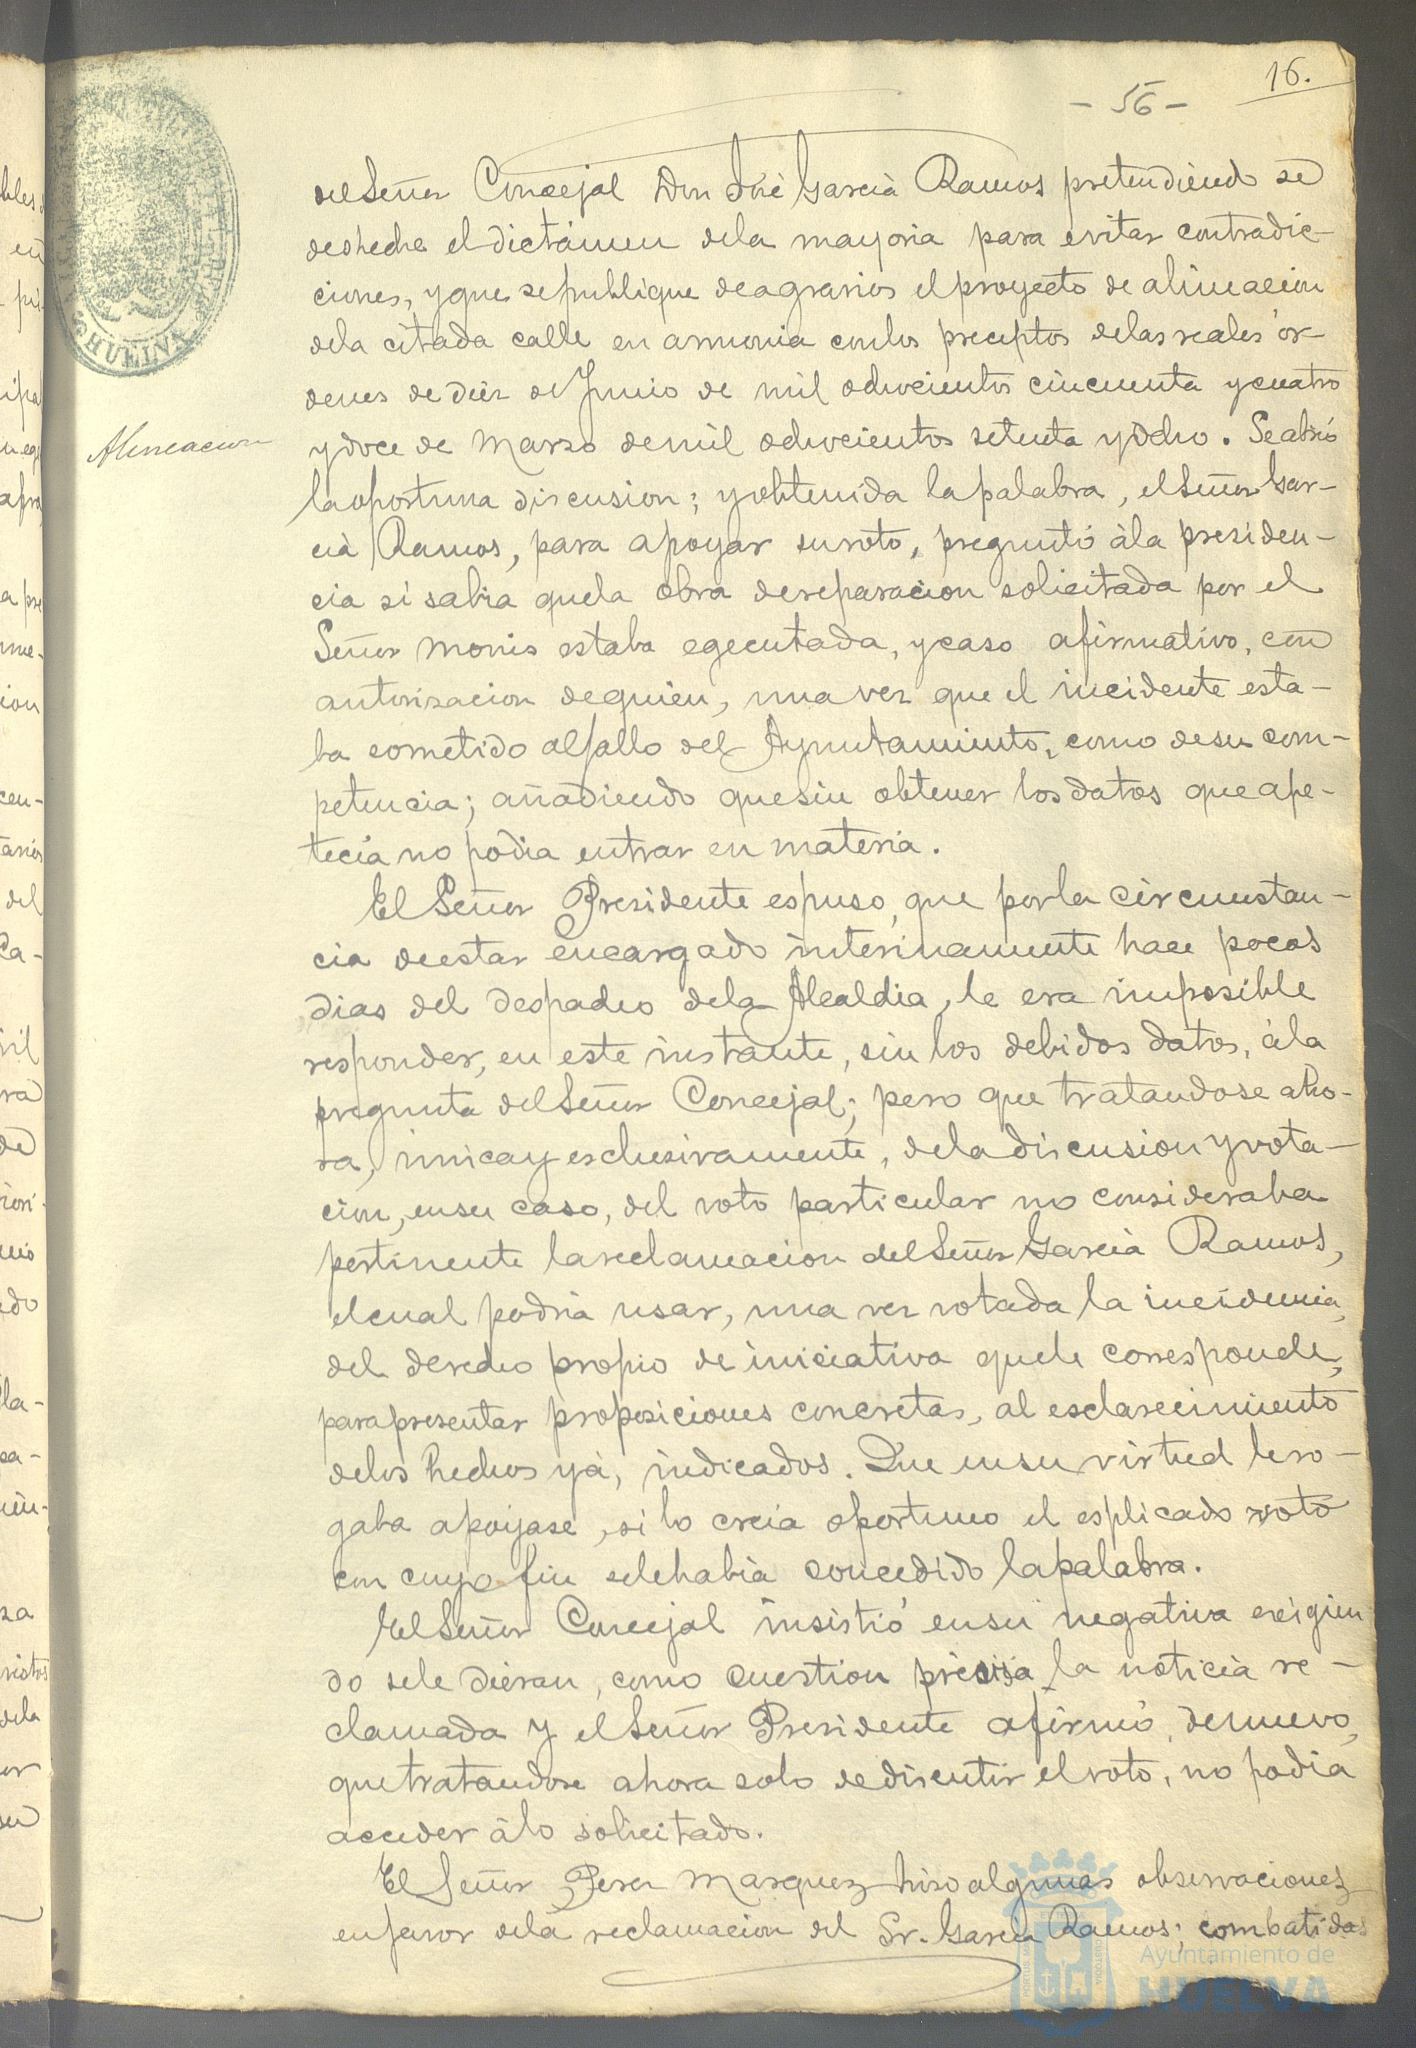 16.
- 56 -
del Señor Concejal Don José Garcia Ramos pretendiendo se
desheche el dictámen dela mayoria para evitar contradic-
ciones, y que se publique de agravios el proyecto de alineacion
dela citada calle en armonia conlos preceptos delas reales ór-
denes de diez de Junio de mil ochocientos cincuenta y cuatro
Alineacion
y doce de Marzo de mil ochocientos setenta y ocho. Se abrió
la oportuna discusion; y obtenida la palabra, el Señor Gar-
cia Ramos, para apoyar su voto, preguntó àla presiden-
cia si sabia que la obra de reparacion solicitada por el
Señor Monis estaba egecutada, y caso afirmativo, con
autorizacion de quien, una vez que el incidente esta-
ba sometido al fallo del Ayuntamiento, como de su com-
petencia; añadiendo que sin obtener los datos que ape-
tecía no podia entrar en materia.
El Señor Presidente espuso, que por la circunstan-
cia de estar encargado interinamente hace pocos
dias del despacho dela Alcaldia, le era imposible
responder, en este instante, sin los debidos datos, àla
pregunta del Señor Concejal; pero que tratandose aho-
ra, unica y esclusivamente, dela discusion y vota-
cion, en su caso, del voto particular no consideraba
pertinente la reclamacion del Señor Garcia Ramos,
el cual podria usar, una vez votada la incidencia,
del derecho propio de iniciativa que le corresponde,
para presentar proposiciones concretas, al esclarecimiento
delos hechos yá, indicados. Que en su virtud le ro-
gaba apoyase, si lo creia oportuno el esplicado voto
con cuyo fin sele habia concedido la palabra.
El Señor Concejal insistió en su negativa exigien
do sele dieran, como cuestion précisa la noticia re-
clamada y el Señor Presidente afirmó, de nuevo,
que tratandose ahora solo de discutir el voto, no podia
acceder à lo solicitado.
El Señor Perez Marquez hizo algunas observaciones
en favor dela reclamacion del Sr. Garcia Ramos; combatidas
HUELVA
Ayuntamiento de
HUELVA